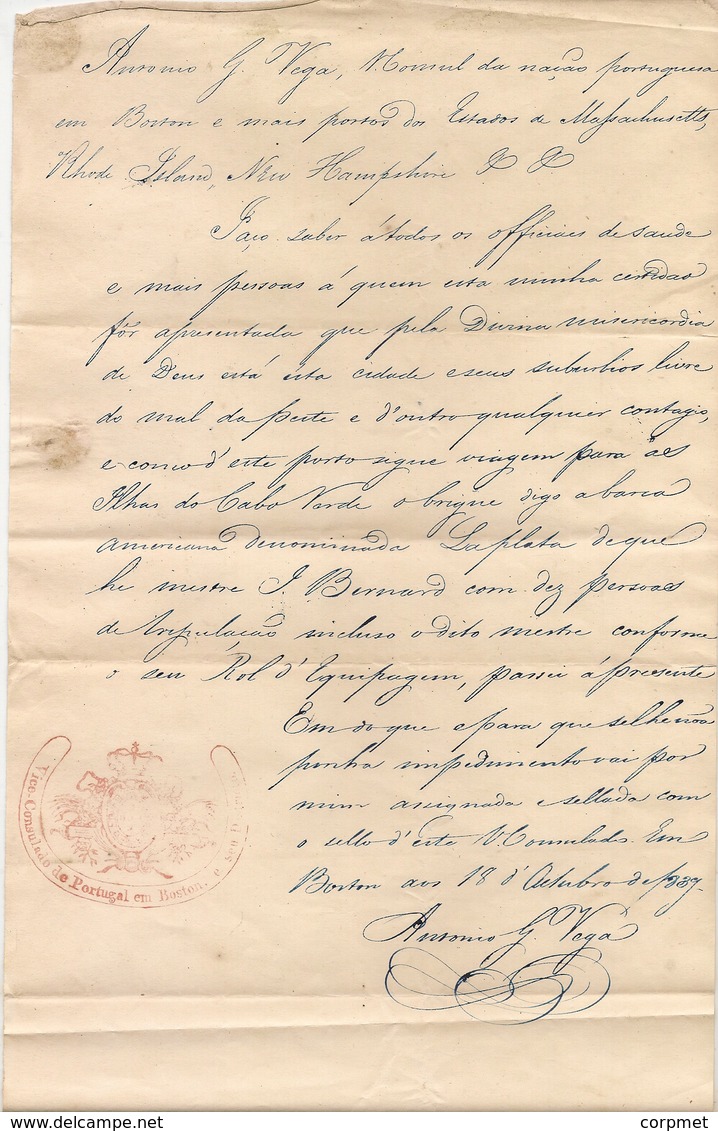 Antonio G. Vega, V. Consul da nação portuguesa
em Boston e mais portos dos Estados de Massachusetts,
Rhode Island, New Hampshire
Faço saber á todos os officiaes de saude
e mais pessoas á quem esta minha certidao
fôr apresentada que pela Divina misericordia
de Deus está esta cidade e seus suburbios livre
do mal da peste e d'outro qualquier contagio,
e como d'este porto sigue viagem para as
Ilhas do Cabo Verde o brigue digo a barca
americana denominada La plata de que
he mestre J. Bernard com dez persoas
de tripulação incluso o dito mestre conforme
o seu Rol d'Equipagem, passei á presente
Em do que e para que se lhe não
ponha impedimento vai por
mim assignada e sellada com
o sello d'este V. Consulado. Em
Boston aos 18 d'Octubro de 1839
Antonio G. Vega
Vice-Consulado de Portugal em Boston, e seu D
corpmet